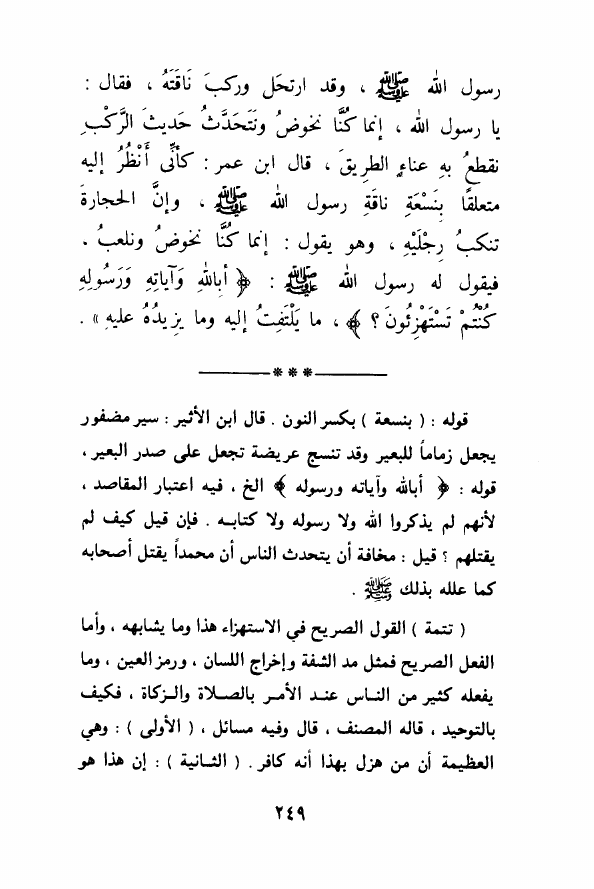 رسول الله ﷺ ، وقد ارتحَل وركبَ نَاقَتَهُ ، فقال :
يا رسول الله ، إنما كُنَّا نخوضُ ونَتَحَدَّثُ حَديثَ الرَّكْبِ
نقطعُ بهِ عناءٍ الطريقَ ، قال ابن عمر : كأنِّى أَنْظُرُ إليه
متعلقًا بِنَسْعَةِ ناقَةِ رسول الله ﷺ ، وإنَّ الحجارةَ
تنكبُ رِجْلَيْهِ ، وهو يقول : إنما كُنَّا نخوضُ ونلعبُ .
فيقول له رسول الله ﷺ : ﴿ أباللهِ وَآياتِهِ وَرَسُولِهِ
كُنْتُمْ تَسْتَهْزِئُونَ ؟ ﴾ ، ما يَلْتَفِتُ إليه وما يزيدُهُ عليهِ » .
***
قوله : ( بنسعة ) بكسر النون . قال ابن الأثير : سير مضفور
يجعل زماماً للبعير وقد تنسج عريضة تجعل على صدر البعير ،
قوله : ﴿ أبالله وآياته ورسوله ﴾ الخ ، فيه اعتبار المقاصد ،
لأنهم لم يذكروا الله ولا رسوله ولا كتابه . فإن قيل كيف لم
يقتلهم ؟ قيل : مخافة أن يتحدث الناس أن محمداً يقتل أصحابه
كما علله بذلك ﷺ .
( تتمة ) القول الصريح في الاستهزاء هذا وما يشابهه ، وأما
الفعل الصريح فمثل مد الشفة وإخراج اللسان ، ورمز العين ، وما
يفعله كثير من الناس عند الأمر بالصلاة والزكاة ، فكيف
بالتوحيد ، قاله المصنف ، قال وفيه مسائل ، ( الأولى ) : وهي
العظيمة أن من هزل بهذا أنه كافر . ( الثانية ) : إن هذا هو
٢٤٩